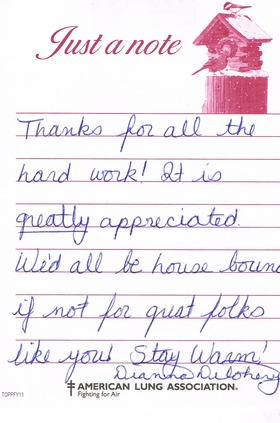 Just a note
Thanks for all the
hard work! It is
greatly appreciated.
We'd all be house bound
if not for great folks
like you! Stay Warm!
Dianna Delohery
AMERICAN LUNG ASSOCIATION®
Fighting for Air
TOPPFY11